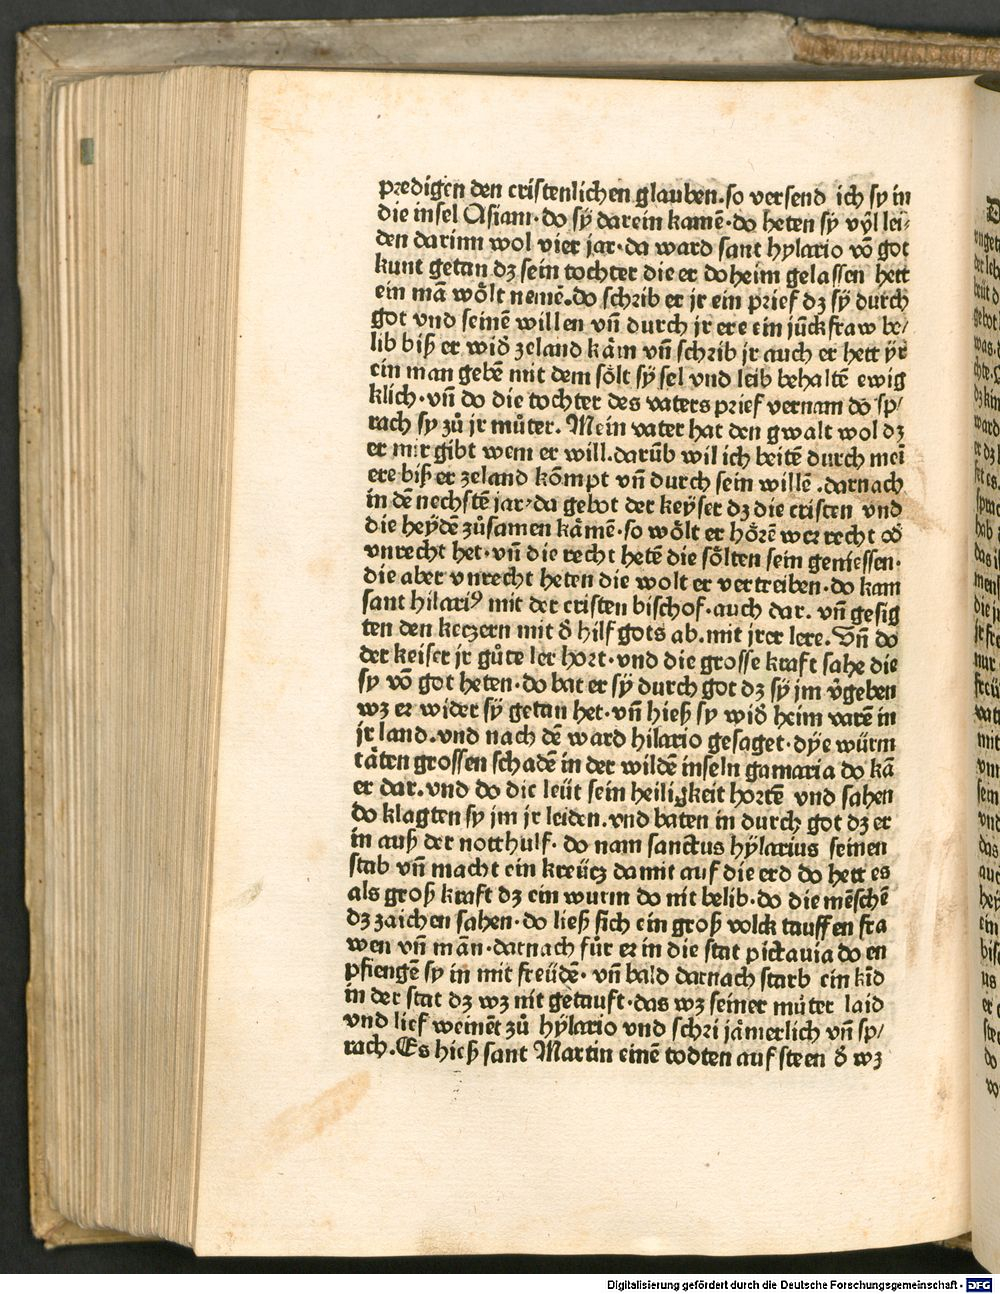 predigen den cristenlichen glauben.so versend ich sy in
die insel Asiam·do sÿ darein kamē·do heten sÿ vÿl lei⸗
den darinn wol vier jar·da ward sant hylario vō got
kunt getan dz sein tochter die er doheim gelassen hett
ein mā woͤlt nemē.do schrib er jr ein prief dz sÿ durch
got vnd seinē willen vn̄ durch jr ere ein jūckfraw be/
lib biß er wid̓ zeland kaͤm vn̄ schrib jr auch er hett ÿr
ein man gebē mit dem soͤlt sÿ sel vnd leib behaltē ewig
klich·vn̄ do die tochter des vaters prief vernam do sp/
rach sy zuͦ jr muͦter. Mein vater hat den gwalt wol dz
er mir gibt wem er will.darūb wil ich beitē durch meī
ere biß er zeland kōmpt vn̄ durch sein willē .darnach
in dē nechstē jar/da gebot der keÿser dz die cristen vnd
die heÿdē zuͦsamen kaͤmē·so woͤlt er hoͤrē wer recht od̓
vnrecht het·vn̄ die recht hetē die soͤlten sein geniessen·
die aber vnrecht heten die wolt er vertreiben·do kam
sant hilariꝰ mit der cristen bischof·auch dar. vn̄ gesig
ten den ketzern mit d̓ hilf gots ab.mit jrer lere. Vn̄ do
der keiser jr guͦte ler hort·vnd die grosse kraft sahe die
sy vō got heten·do bat er sÿ durch got dz sÿ jm v̓geben
wz er wider sÿ getan het·vn̄ hieß sy wid̓ heim varē in
jr land.vnd nach dē ward hilario gesaget·dÿe würm
taͤten grossen schadē in der wildē inseln gamaria do kā
er dar.vnd do die leüt sein heiligkeit hortē vnd sahen
do klagten sy jm jr leiden.vnd baten in durch got dz er
in auß der notthulf· do nam sanctus hÿlarius seinen
stab vn̄ macht ein kreütz damit auf die erd do hett es
als groß kraft dz ein wurm do nit belib·do die mēschē
dz zaichen sahen·do ließ sich ein groß volck tauffen fra
wen vn̄ mān·darnach fuͦr er in die stat pictauia do en
pfiengē sy in mit freüdē· vn̄ bald darnach starb ein kīd
in der stat dz wz nit getauft·das wz seiner muͦter laid
vnd lief weinēt zuͦ hÿlario vnd schri jaͤmerlich vn̄ sp/
rach.Es hieß sant Martin einē todten aufsteen d̓ wz
Digitalisierung gefördert durch die Deutsche Forschungsgemeinschaft - DFG